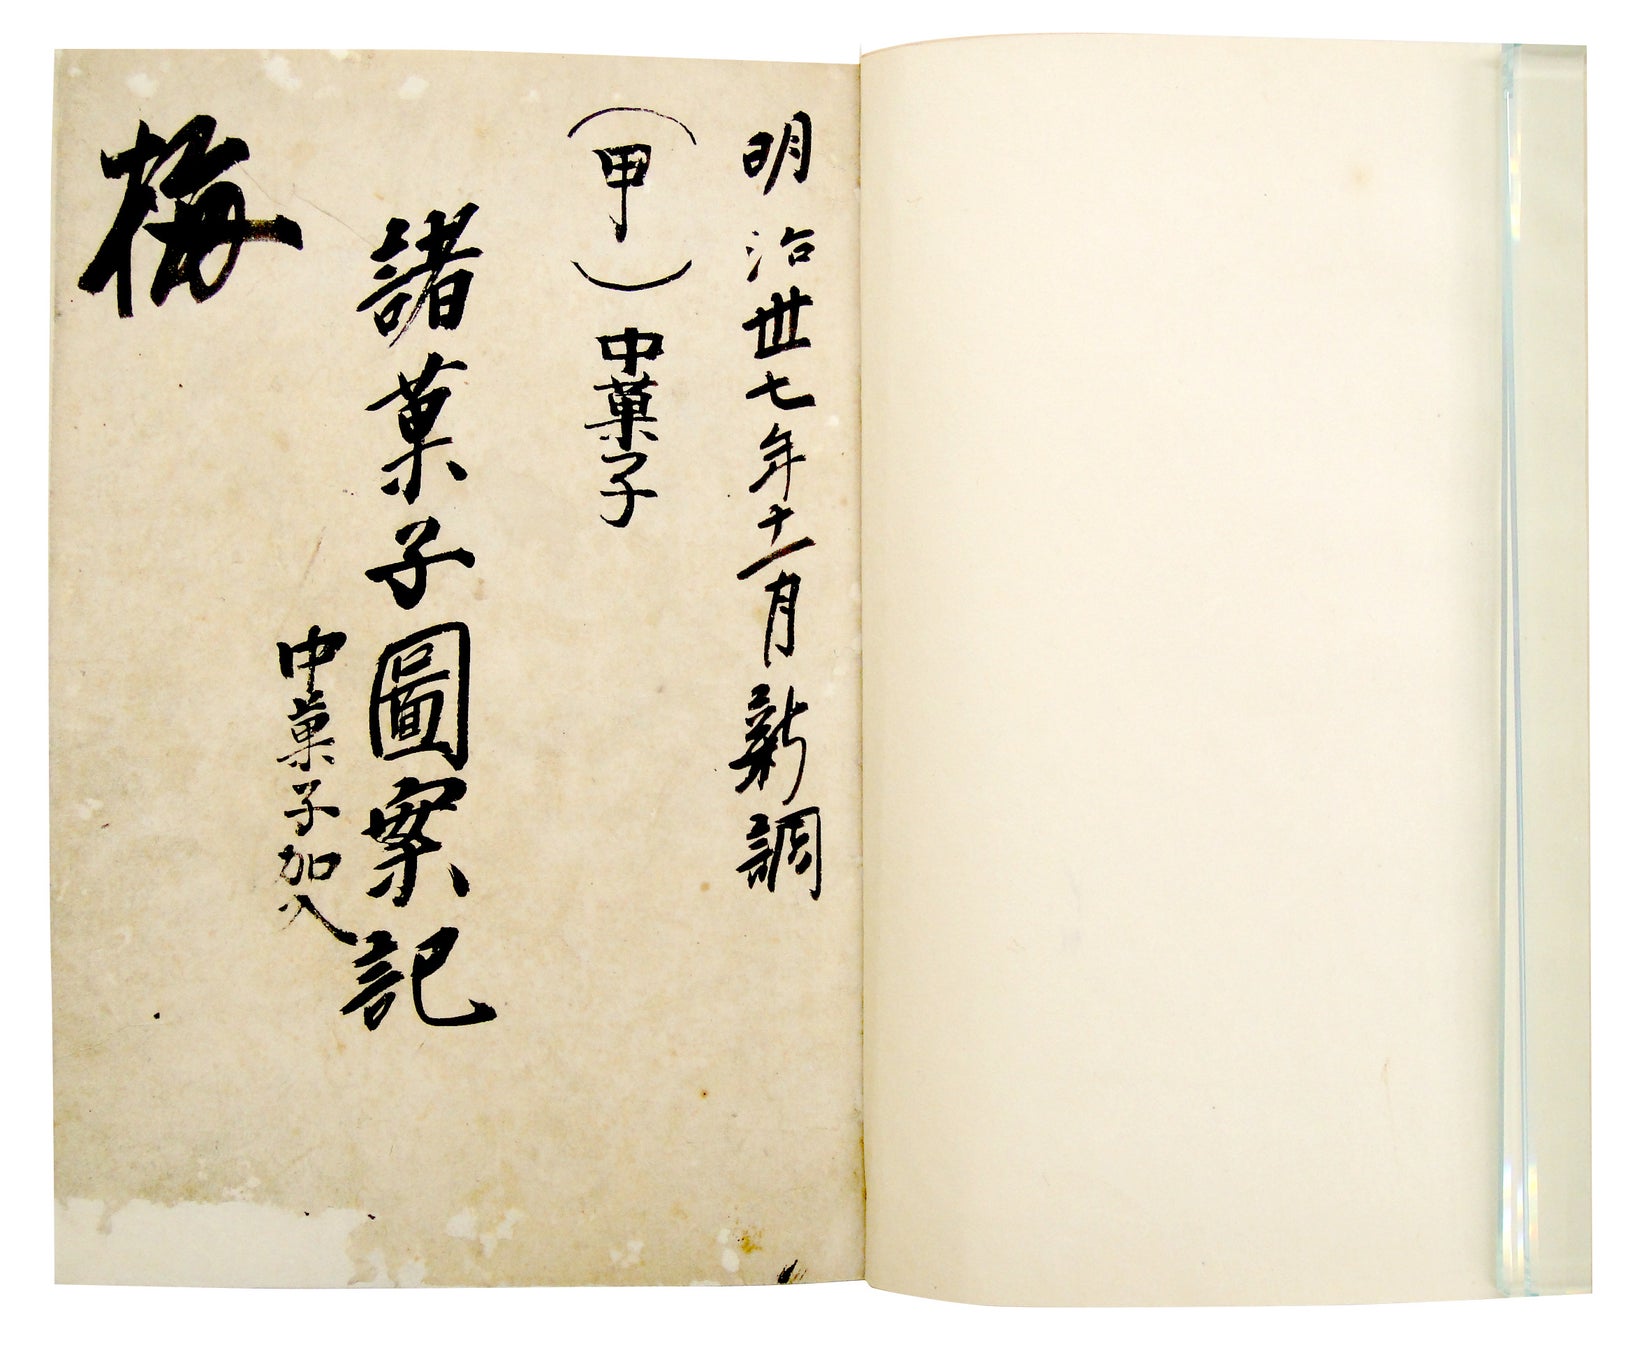 明治卅七年十一月新調
（甲）中菓子
諸菓子圖案記
中菓子加入
梅